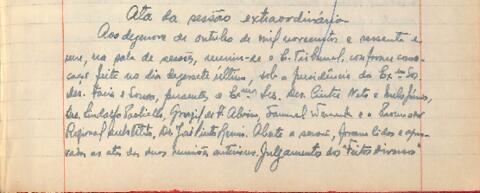 Ata da sessão extraordinária
Aos dezenove de outubro de mil novecentos e sessenta e
um, na sala de sessões, reuniu-se o E. Tribunal, conforme convo-
cação feita no dia dezessete último, sob a presidência do Exmo Sr.
des. Faria e Sousa, presentes os Exmos Srs. Des. Cintra Neto e
drs. Lindolfo Paolielo, de F. Alvim, Samuel e o Procurador
Regional substituto, Dr. José Pinto Renó. Aberta a sessão, foram lidas e apro-
vadas as atas das duas reuniões anteriores. Julgamento dos "Feitos Diversos"